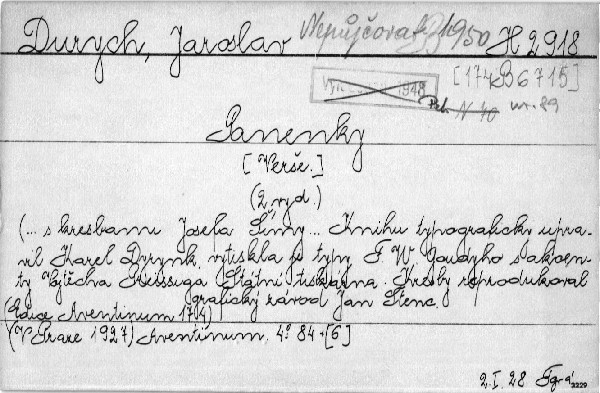 Durych, Jaroslav Nepůjčovat 1950 H 2918
[174B6715]
1948
N 70
Panenky
[Verše.]
(2. vyd.)
(... s kresbami Josefa Šímy ... Knihu typograficky upra-
vil Karel Dyrynk, vytiskla je typy F. W. Goudyho s akcen-
ty Vojtěcha Preissiga Státní tiskárna. Kresby reprodukoval
grafický závod Jan Štenc.
(Edice Aventinum 174)
(V Praze 1927) Aventinum. 4° 84+[6]
2. I. 28
2229